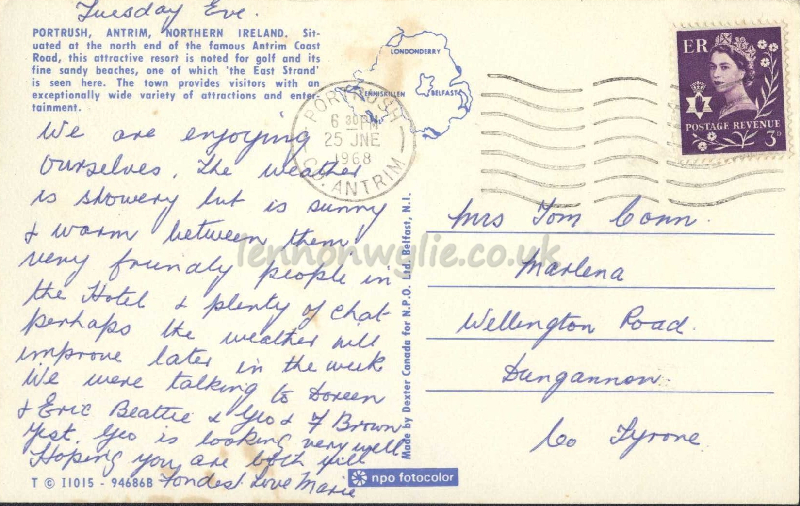 Tuesday Eve.
PORTRUSH, ANTRIM, NORTHERN IRELAND. Sit-
uated at the north end of the famous Antrim Coast
Road, this attractive resort is noted for golf and its
fine sandy beaches, one of which 'the East Strand'
is seen here. The town provides visitors with an
exceptionally wide variety of attractions and enter-
tainment.
We are enjoying
ourselves. The weather
is showery but is sunny
& warm between them
very friendly people in
the Hotel & plenty of chat
perhaps the weather will
improve later in the week
We were talking to Doreen
& Eric Beattie & Geo & F Brown
yest. Geo is looking very well
Hoping you are both well
Fondest Love Marie
T © I1015 - 94686B
LONDONDERRY
ENNISKILLEN
BELFAST
PORTRUSH
6 30 PM
25 JNE
1968
CO. ANTRIM
E R
POSTAGE REVENUE
3D
Made by Dexter Canada for N.P.O. Ltd. Belfast, N.I.
Mrs Tom Conn.
Marlena
Wellington Road.
Dungannon
Co Tyrone.
npo fotocolor
lennonwylie.co.uk